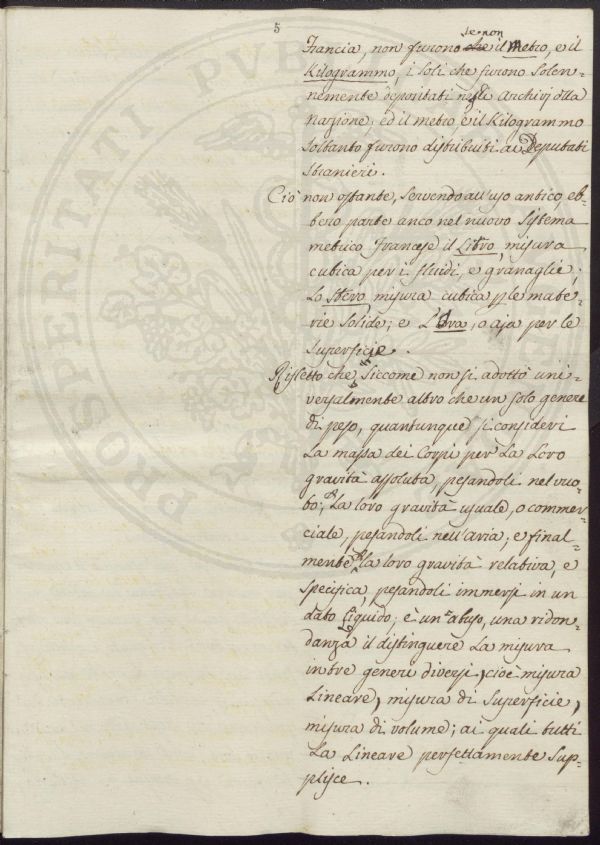 5
Francia, non furono senon il metro, e il
Kilogrammo, i soli che furono solen-
nemente depositati negli Archivj della
nazione; ed il metro, e il Kilogrammo
soltanto furono distribuiti ai Deputati
stranieri.
Ciò non ostante, servendo all'uso antico, eb-
bero parte anco nel nuovo sistema
metrico Francese il Litro, misura
cubica per i fluidi, e granaglie;
Lo Stero, misura cubica p le mate-
rie solide; e L'Ara, o aja per le
superficie.
Rifletto che, siccome non si adottò uni-
versalmente altro che un solo genere
di peso, quantunque si consideri
La massa dei Corpi per La Loro
gravità assoluta, pesandoli nel vuo-
to; La loro gravità usuale, o commer-
ciale, pesandoli nell'aria; e final-
mente la loro gravità relativa, e
specifica, pesandoli immersi in un
dato Liquido; è un abuso, una ridon-
danza il distinguere La misura
in tre generi diversi, cioè misura
Lineare, misura di superficie,
misura di volume; ai quali tutti
La Lineare perfettamente sup-
plisce.
PROSPERITATI PVBLI